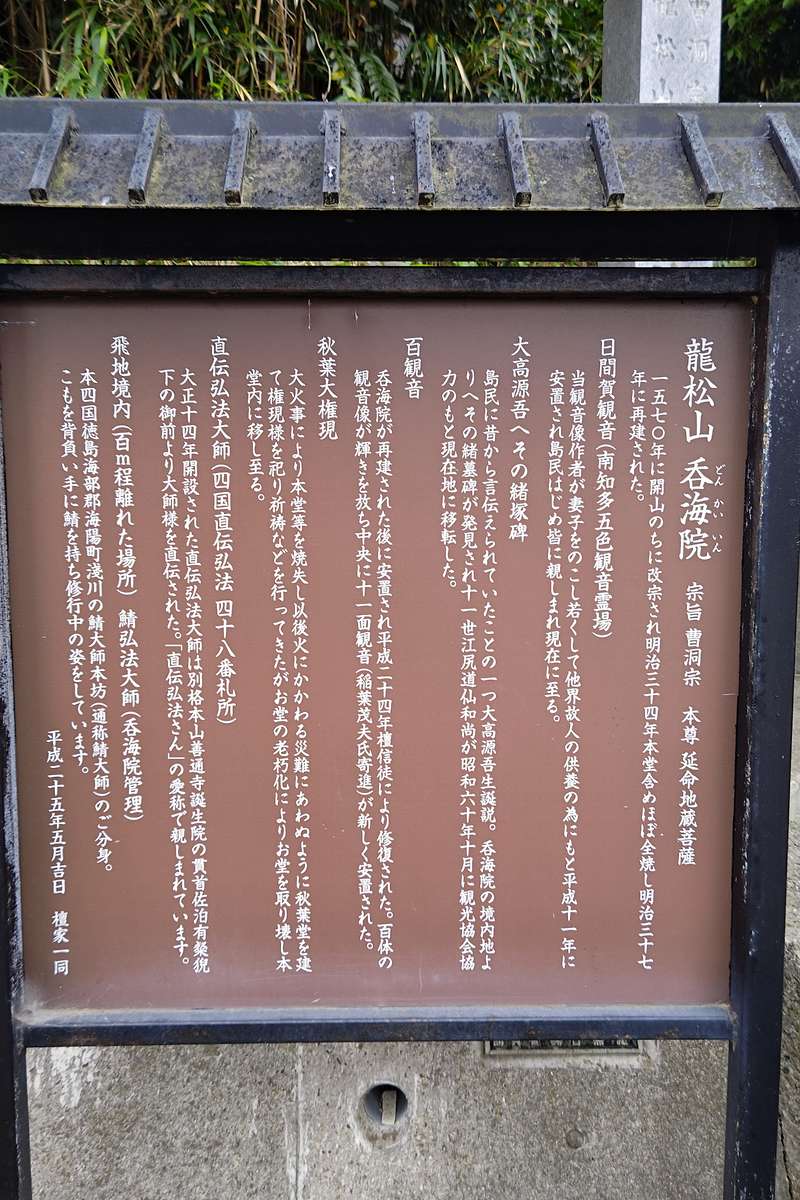 曹洞宗
龍松山
龍松山 呑海院 宗旨 曹洞宗 本尊 延命地蔵菩薩
どん かい いん
一五七〇年に開山のちに改宗され明治三十四年本堂含めほぼ全焼し明治三十七
年に再建された。
日間賀観音(南知多五色観音霊場)
当観音像作者が妻子をのこし若くして他界故人の供養の為にもと平成十一年に
安置され島民はじめ皆に親しまれ現在に至る。
大高源吾へその緒塚碑
島民に昔から言伝えられていたことの一つ大高源吾生誕説。呑海院の境内地よ
りへその緒墓碑が発見され十一世江尻道仙和尚が昭和六十年十月に観光協会協
力のもと現在地に移転した。
百観音
呑海院が再建された後に安置され平成二十四年檀信徒により修復された。百体の
観音像が輝きを放ち中央に十一面観音(稲葉茂夫氏寄進)が新しく安置された。
秋葉大権現
大火事により本堂等を焼失し以後火にかかわる災難にあわぬように秋葉堂を建
て権現様を祀り祈祷などを行ってきたがお堂の老朽化によりお堂を取り壊し本
堂内に移し至る。
直伝弘法大師(四国直伝弘法 四十八番札所)
大正十四年開設された直伝弘法大師は別格本山善通寺誕生院の貫首佐泊有粲猊
下の御前より大師様を直伝された。「直伝弘法さん」の愛称で親しまれています。
飛地境内(百m程離れた場所) 鯖弘法大師(呑海院管理)
本四国徳島海部郡海陽町浅川の鯖大師本坊(通称鯖大師)のご分身。
こもを背負い手に鯖を持ち修行中の姿をしています。
平成二十五年五月吉日 檀家一同